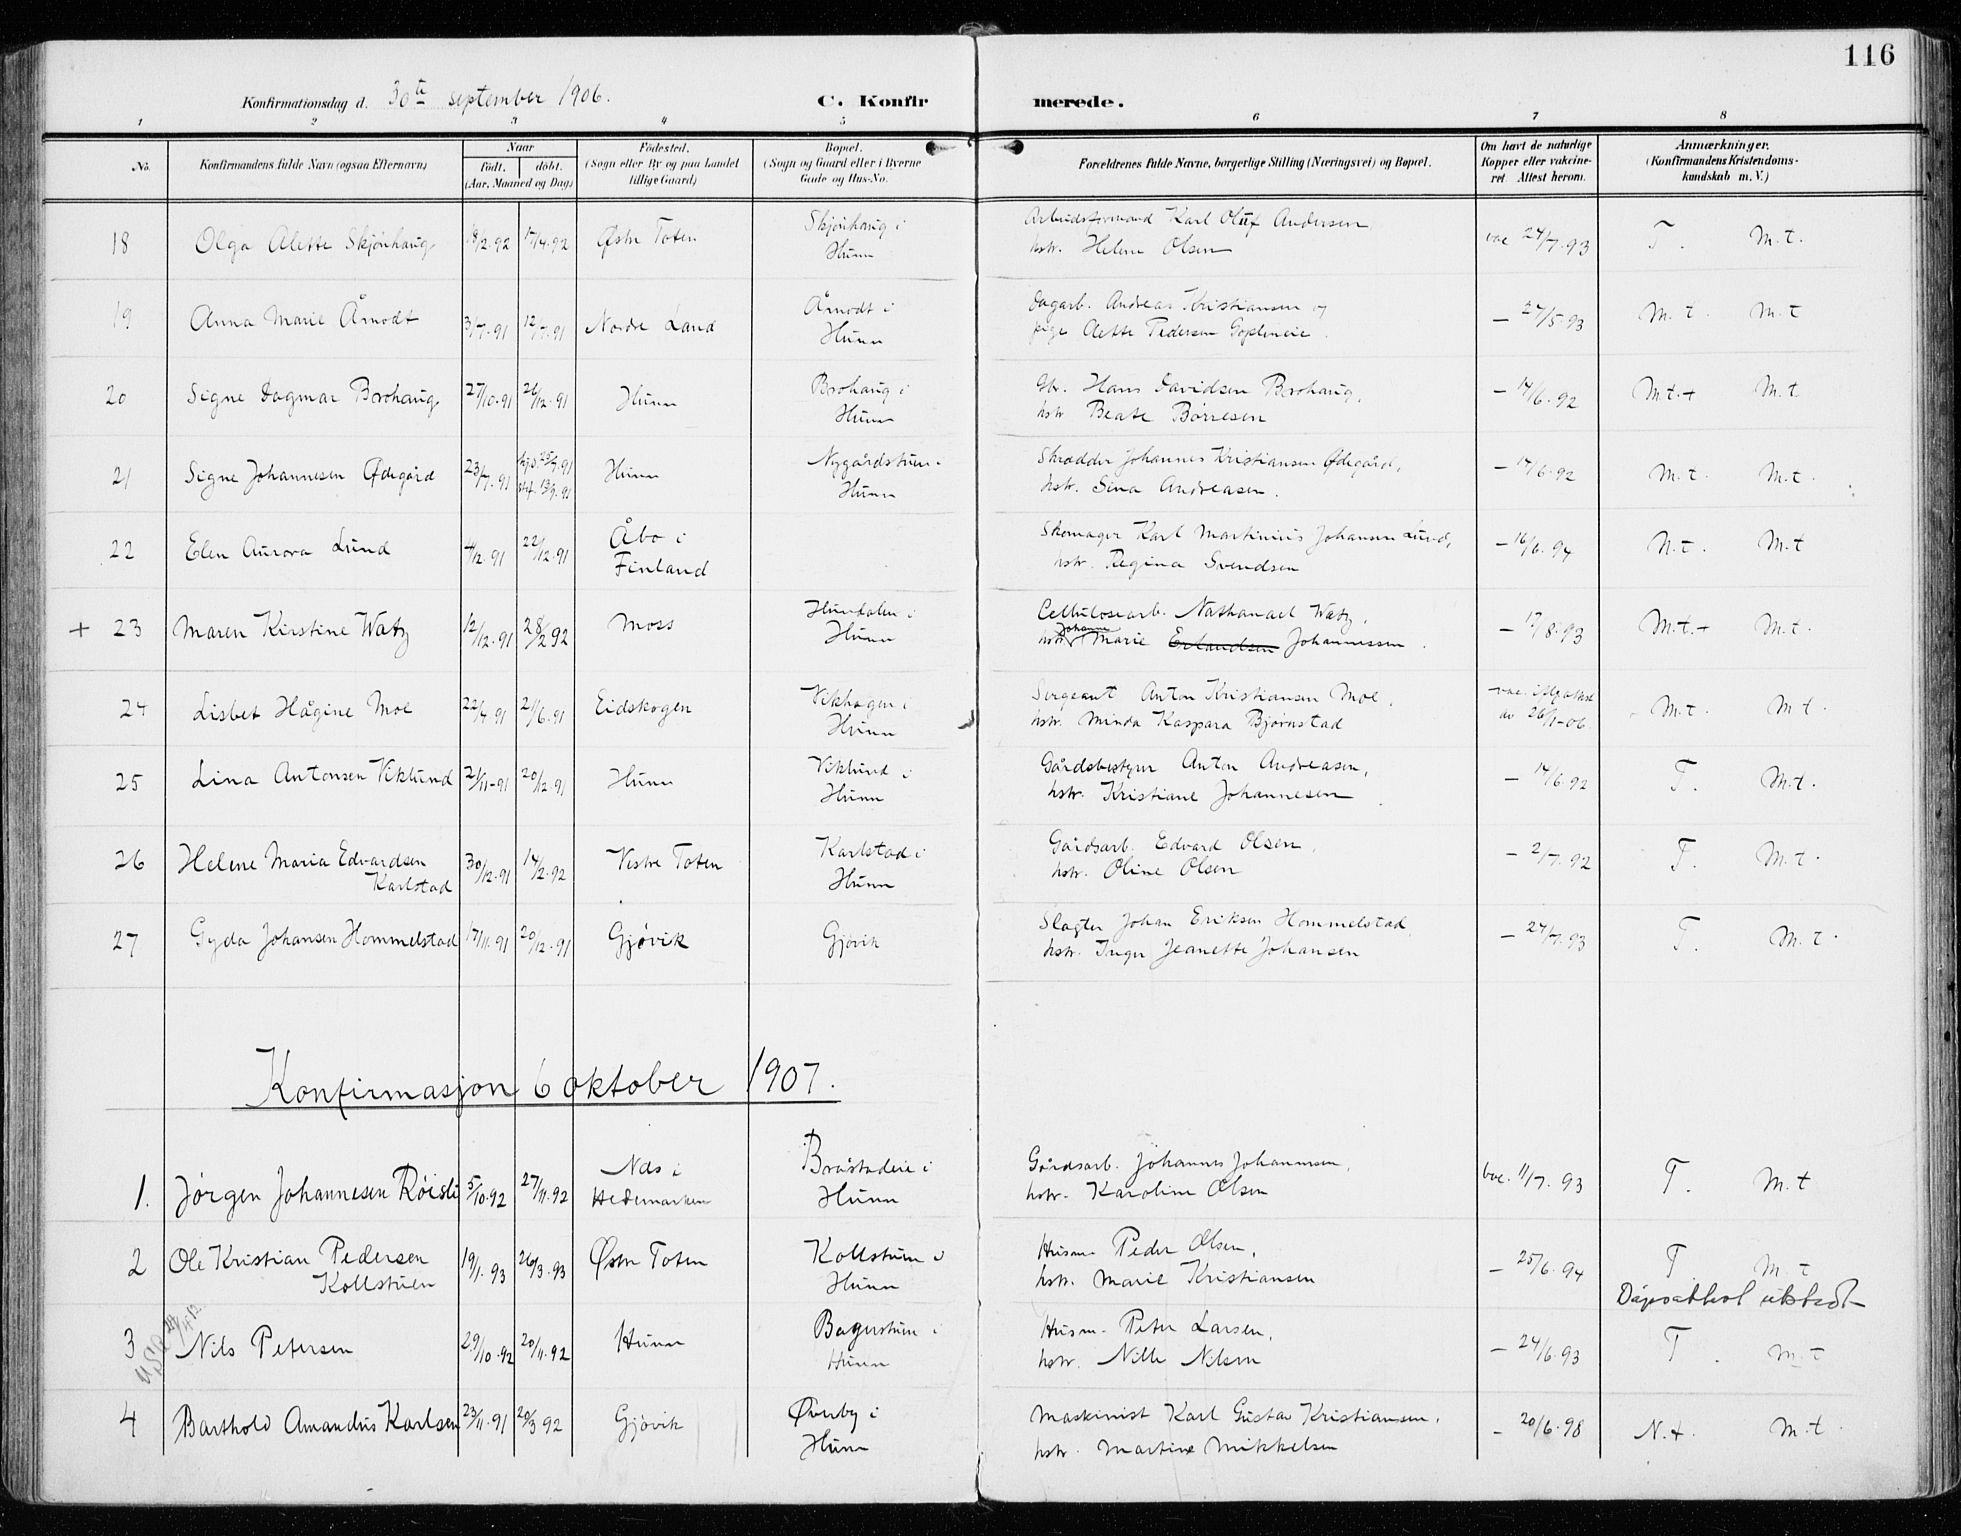 116
Konfirmationsdag d. 30te september 1906.
C. Konfir merede.
1 2 3 4 5 6 7 8
No. Konfirmandens fulde Navn (ogsaa Efternavn) Naar født. døbt. (Aar, Maaned og Dag) Fødested. (Sogn eller By og paa Landet tillige Gaard) Bopæl. (Sogn og Gaard eller i Byerne Gade og Hus-No. Forældrenes fulde Navne, borgerlige Stilling (Næringsvei) og Bopæl. Om havt de naturlige Kopper eller vakcineret. Attest herom. Anmærkninger. (Konfirmandens Kristendomskundskab m. V.)
18 Olga Alette Skjönhaug 18/2.92 17/4.92 Østre Toten Skjönhaug i Hunn
Arbeidsformand Karl Oluf Andersen, hstr. Helene Olsen vac 24/7.93 T. M.t.
19 Anna Marie Årnodt 3/7.91 12/7.91 Nordre Land Årnodt i Hunn
Dagarb. Andreas Kristiansen og pige Alette Pedersen — 27/5.93 M.t. M.t
20 Signe Dagmar Brohaug 27/10.91 26/12.91 Hunn Brohaug i Hunn
Gbr. Hans Davidsen Brohaug, hstr Beate Børresen — 14/6.92 M.t.+ M.t
21 Signe Johannesen Ødegård 23/7.91 Hunn Nygårdstuen i Hunn
Skrædder Johannes Kristiansen Ødegård, hstr. Sina Andreasen. — 14/6.92 M.t. M.t.
22 Elen Aurora Lund 4/12.91 22/12.91 Åbo i Finland
Skomager Karl Martinius Johansen Lund, hstr. Regina Svendsen — 16/6.94 N.t. M.t
+ 23 Maren Kirstine Watz 12/12.91 28/2 92 Moss Hundalen i Hunn
Cellulosearb. Nathanael Watz, hstr. Johanne Marie Erlandsen Johannessen. — 17/8.93 M.t.+ M.t.
24 Lisbet Hågine Moe 22/4.91 21/6.91 Eidskogen Vikhagen i Hunn
Sergeant Anton Kristiansen Moe, hstr. Minda Kaspara Bjørnstad vac. av 26/1-06 M.t. M.t.
25 Lina Antonsen Viklund 21/11-91 20/12.91 Hunn Viklund i Hunn
Gårdsbestyrer Anton Andreasen, hstr. Kristiane Johannesen — 14/6.92 T. M.t.
26 Helene Maria Edvardsen Karlstad 30/12.91 14/2.92 Vestre Toten Karlstad i Hunn
Gårdsarb. Edvard Olsen, hstr. Oline Olsen — 2/7.92 T. M.t.
27 Gyda Johansen Hommelstad 17/11.91 20/12.91 Gjøvik Gjøvik
Slagter Johan Eriksen Hommelstad, hstr. Inger Jeanette Johansen — 24/7.93 T. M.t.
Konfirmasjon 6 oktober 1907.
1. Jørgen Johannesen Røisli 5/10.92 27/11.92 Nes i Hedemarken Bråstadeie i Hunn
Gårdsarb. Johannes Johannesen, hstr. Karoline Olsen vac. 11/7.93 T. M.t
2 Ole Kristian Pedersen Kollstuen 19/1.93 26/3.93 Østre Toten Kollstuen i Hunn
Husm. Peder Olsen, hstr. Marie Kristiansen — 25/6.94 T M.t
Dåpsattest utstedt
3 Nils Petersen 29/10.92 20/11.92 Hunn Bagerstuen i Hunn
Husm. Peter Larsen, hstr. Nille Nilsen — 24/6.93 T. M.t
4 Barthold Amandus Karlsen 23/11.91 20/3 92 Gjøvik Øverby i Hunn
Maskinist Karl Gustav Kristiansen, hstr. Martine Mikkelsen — 20/6.98 N.t. M.t.